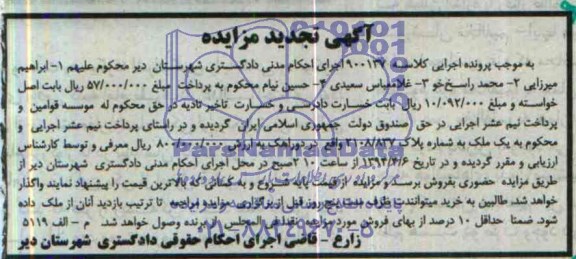 آگهی تجدید مزایده
به موجب پرونده اجرایی کلاسه ۹۰۰۱۳۷ اجرای احکام مدنی دادگستری شهرستان دیر محکوم علیهم ۱- ابراهیم
میرزایی ۲- محمد راسخ‌خو ۳- غلامعباس سعیدی ۴- حسین نیام محکوم به پرداخت مبلغ ۵۷/۰۰۰/۰۰۰ ریال بابت اصل
خواسته و مبلغ ۱۰/۰۹۲/۰۰۰ ریال بابت خسارت دادرسی و خسارت تاخیر تادیه در حق محکوم له موسسه قوامین و
پرداخت نیم عشر اجرایی در حق صندوق دولت جمهوری اسلامی ایران گردیده و در راستای پرداخت نیم عشر اجرایی و
محکوم به یک ملک به شماره پلاک واقع در دوراهک به ارزش ریال معرفی و توسط کارشناس
ارزیابی و مقرر گردیده و در تاریخ ۱۳۹۳/۴/۶ از ساعت در محل اجرای احکام مدنی دادگستری شهرستان دیر از
طریق مزایده حضوری بفروش برسد و مزایده از قیمت پایه شروع و به کسانی که بالاترین قیمت را پیشنهاد نمایند واگذار
خواهد شد. طالبین به خرید میتوانند ظرف مدت پنج روز قبل از برگزاری مزایده مراجعه تا ترتیب بازدید آنان از ملک داده
شود. ضمنا حداقل ۱۰ درصد از بهای فروش مورد مزایده نقدا فی المجلس از برنده وصول خواهد شد. م - الف ۱۱۹
زارع - قاضی اجرای احکام حقوقی دادگستری شهرستان دیر